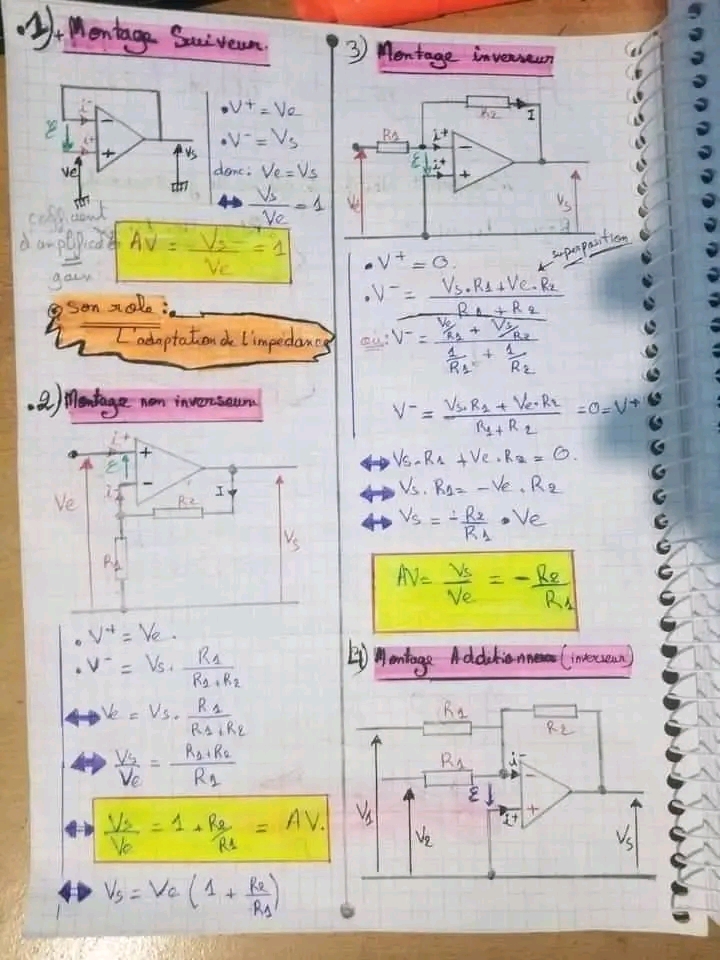 .1) + Montage Suiveur.
i-
ε
i+
-
+
Ve
Vs
• V+ = Ve
• V- = Vs
donc: Ve = Vs
⇔ Vs/Ve = 1
coefficient
d'amplificat°
gain
AV = Vs/Ve = 1
Son role:
L'adaptation de l'impédance
.2) Montage non inverseur
i+
ε
i-
+
-
R2
I
R1
Ve
Vs
• V+ = Ve.
• V- = Vs . R1/(R1+R2)
⇔ Ve = Vs . R1/(R1+R2)
⇔ Vs/Ve = (R1+R2)/R1
⇔ Vs/Ve = 1 + R2/R1 = AV.
⇔ Vs = Ve (1 + R2/R1)
3) Montage inverseur
R2
I
R1
i+
ε
i+
-
+
Ve
Vs
superposition
• V+ = 0.
• V- = (Vs.R1 + Ve.R2)/(R1 + R2)
où: V- = (Ve/R1 + Vs/R2)/(1/R1 + 1/R2)
V- = (Vs.R1 + Ve.R2)/(R1+R2) = 0 = V+
⇔ Vs.R1 + Ve.R2 = 0.
⇔ Vs.R1 = -Ve.R2
⇔ Vs = -R2/R1 • Ve
AV = Vs/Ve = -R2/R1
4) Montage Additionneur (inverseur)
R1
R2
R1
i-
ε
i+
-
+
V1
V2
Vs